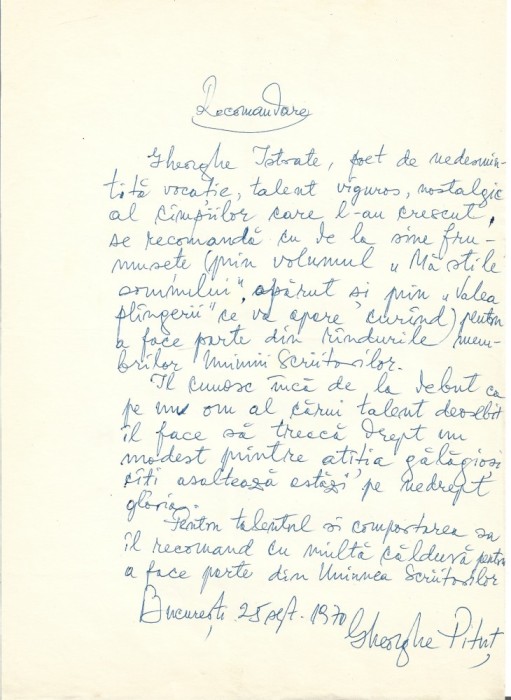 Recomandare
Gheorghe Istrate, poet de nedesmin-
țită vocație, talent viguros, nostalgic
al cîmpiilor care l-au crescut,
se recomandă cu de la sine fru-
musețe (prin volumul „Măștile
somnului" apărut și prin „Valea
plîngerii" ce va apare curînd) pentru
a face parte din rîndurile mem-
brilor Uniunii Scriitorilor.
Îl cunosc încă de la debut ca
pe un om al cărui talent deosebit
îl face să treacă drept un
modest printre atîția gălăgioși
cîți asaltează astăzi pe nedrept
gloria.
Pentru talentul și comportarea sa
îl recomand cu multă căldură pentru
a face parte din Uniunea Scriitorilor
București 25 sept. 1970
Gheorghe Pituț